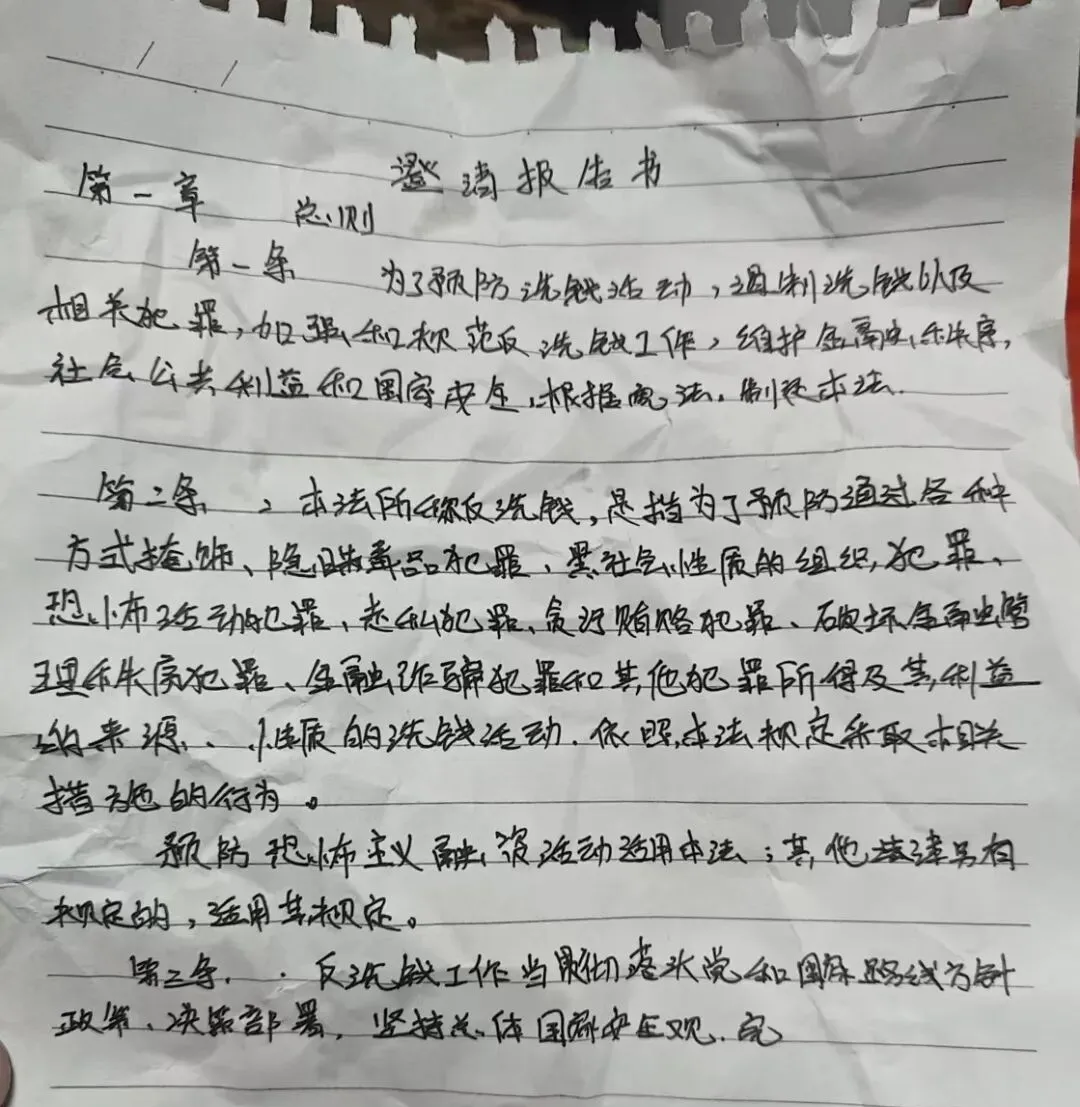 澄清报告书
第一章 总则
第一条 为了预防洗钱活动，遏制洗钱以及
相关犯罪，加强和规范反洗钱工作，维护金融秩序，
社会公共利益和国家安全，根据宪法，制定本法.
第二条、本法所称反洗钱，是指为了预防通过各种
方式掩饰、隐瞒毒品犯罪、黑社会性质的组织犯罪、
恐怖活动犯罪、走私犯罪、贪污贿赂犯罪、破坏金融管
理秩序犯罪、金融诈骗犯罪和其他犯罪所得及其利益
的来源、性质的洗钱活动.依照本法规定采取相关
措施的行为。
预防恐怖主义融资活动适用本法；其他法律另有
规定的，适用其规定。
第三条. 反洗钱工作当贯彻落实党和国家路线方针
政策、决策部署，坚持总体国家安全观.完